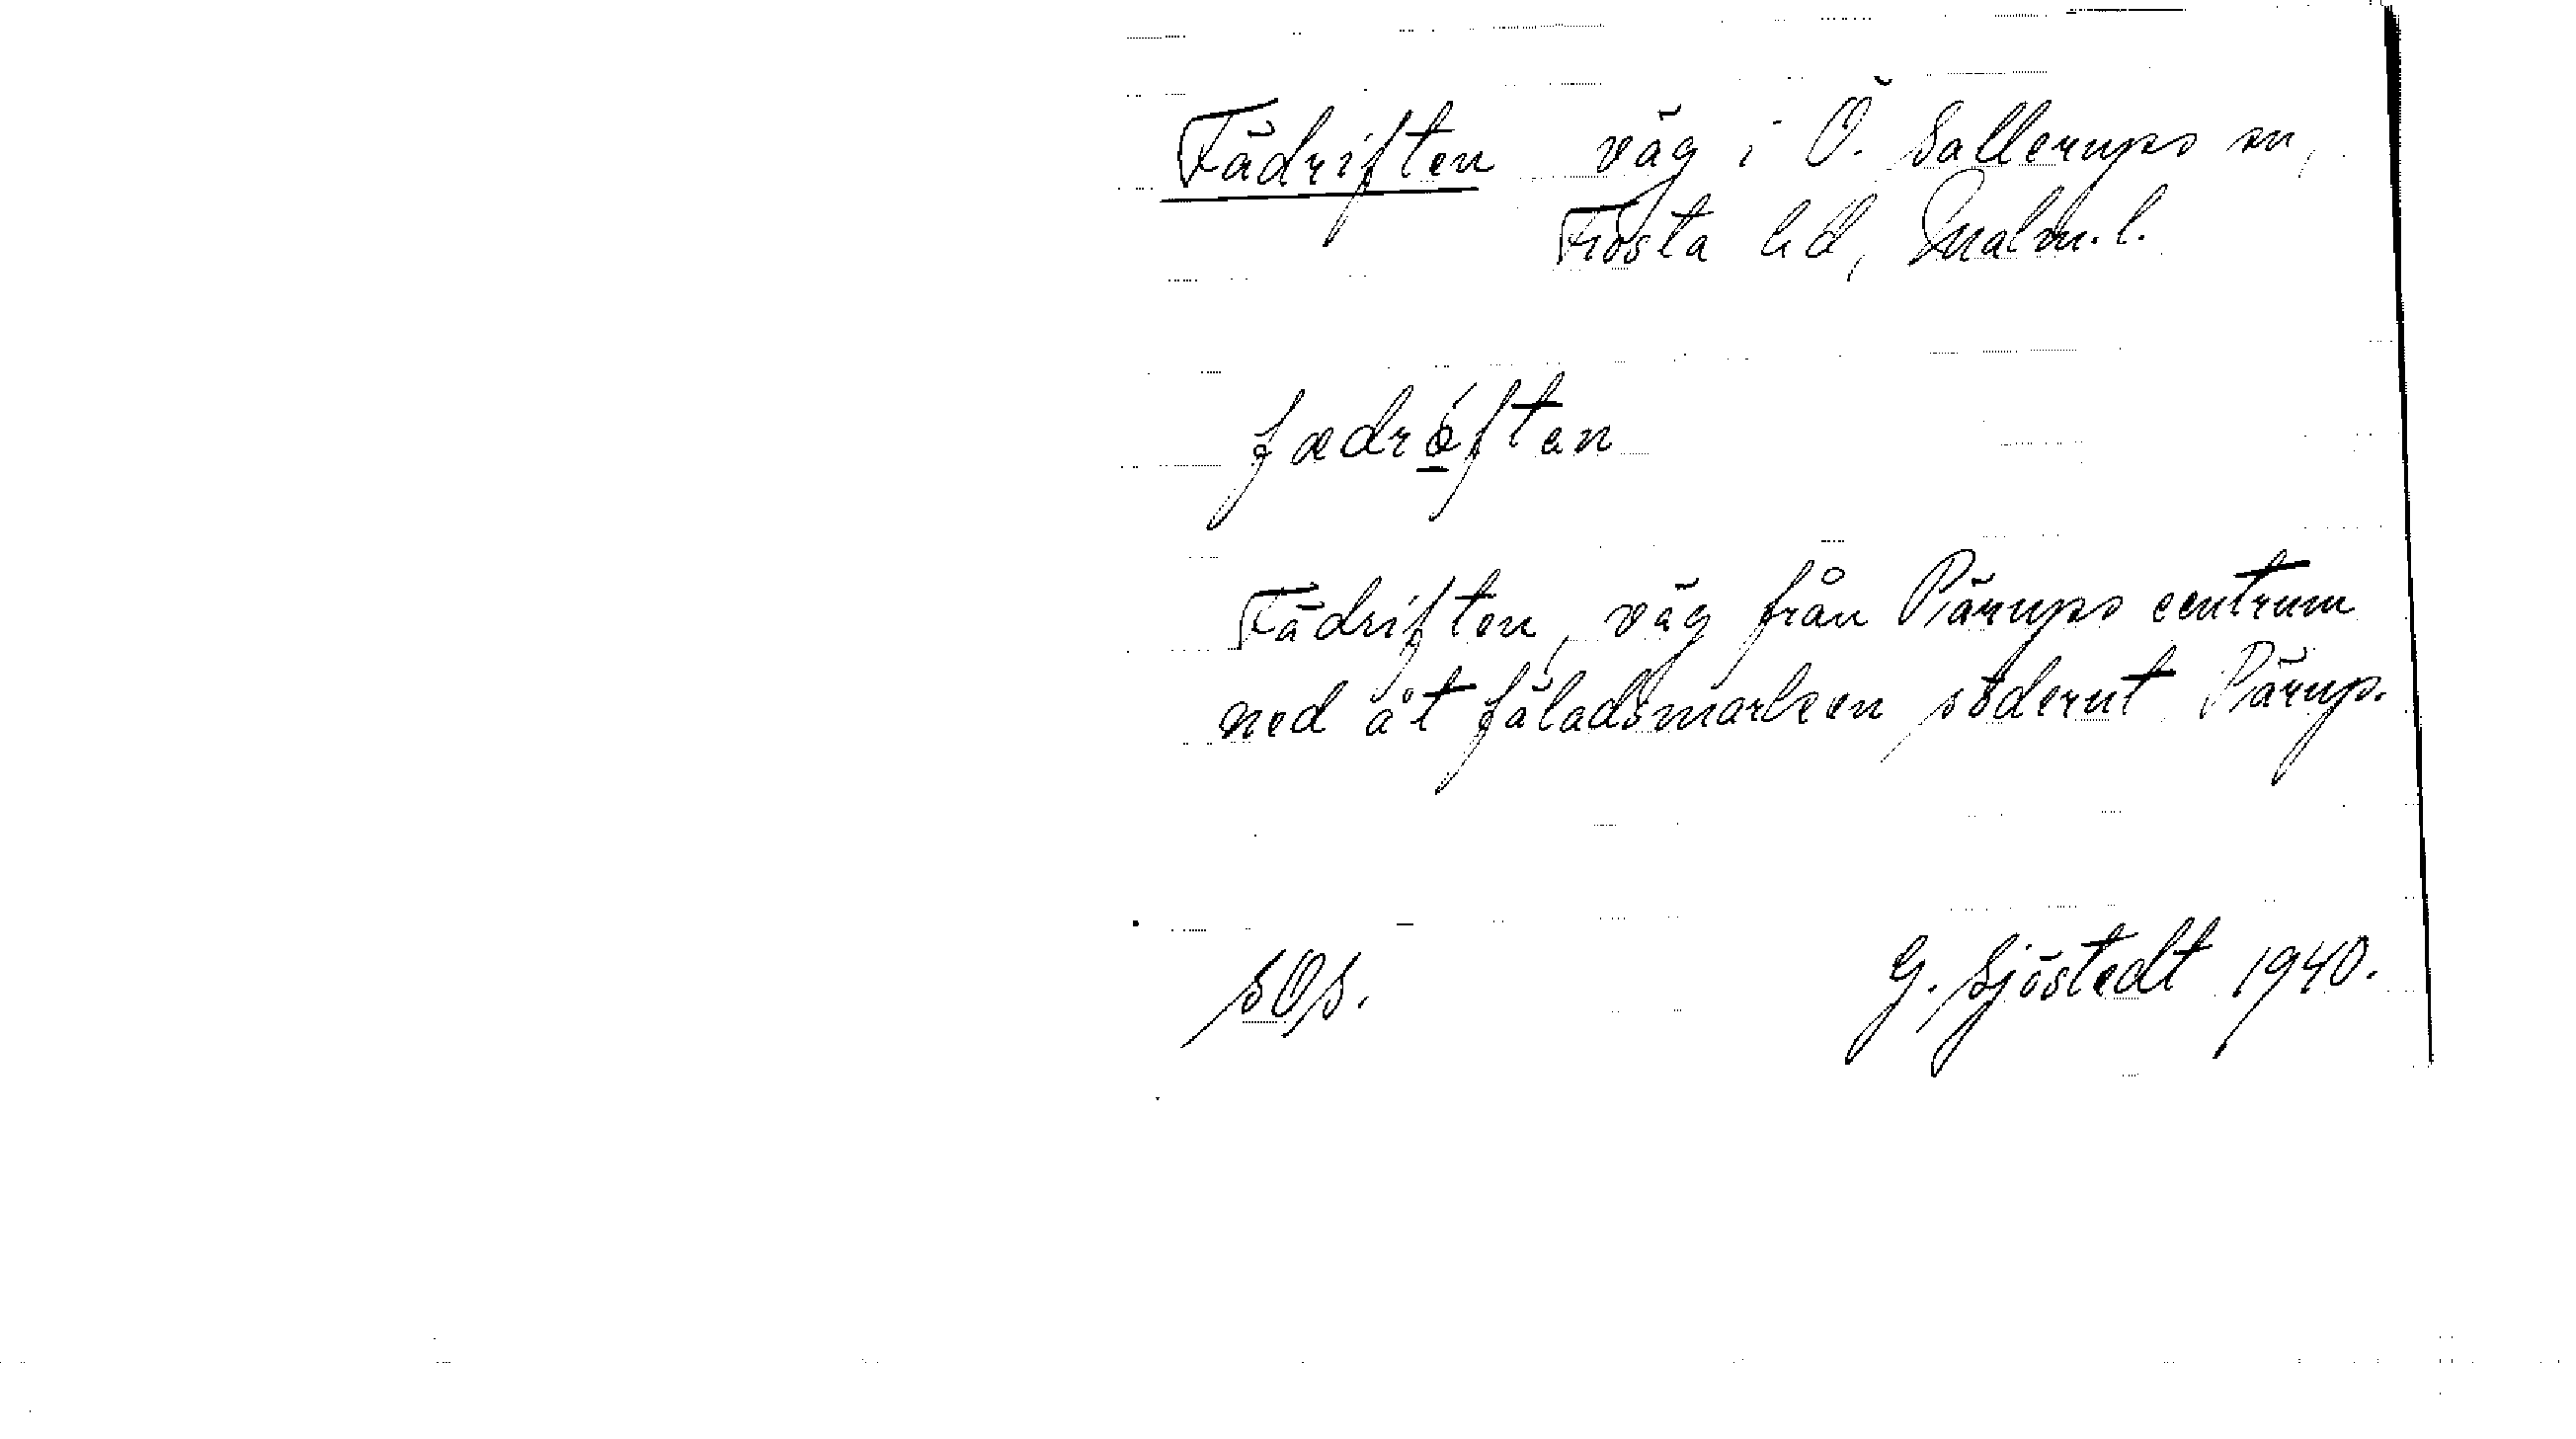 Fädriften väg i Ö. Sallerups sn,
Frosta hd, Malm. l.
fædrǿften
Fädriften, väg från Pärups centrum
ned åt fäladsmarken söderut Pärup.
SOS.
G. Sjöstedt 1940.